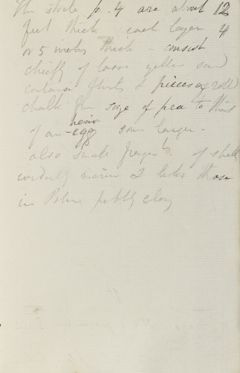 The whole p. 4 are about 12
feet thick - each layer 4
or 5 inches thick - consist
chiefly of loose yellow sand
containing flints & pieces of roll
chalk from size of pea to that
of an hens egg some larger.
also small fragts of shell
evidently marine I take those
in Patne pebbly clay